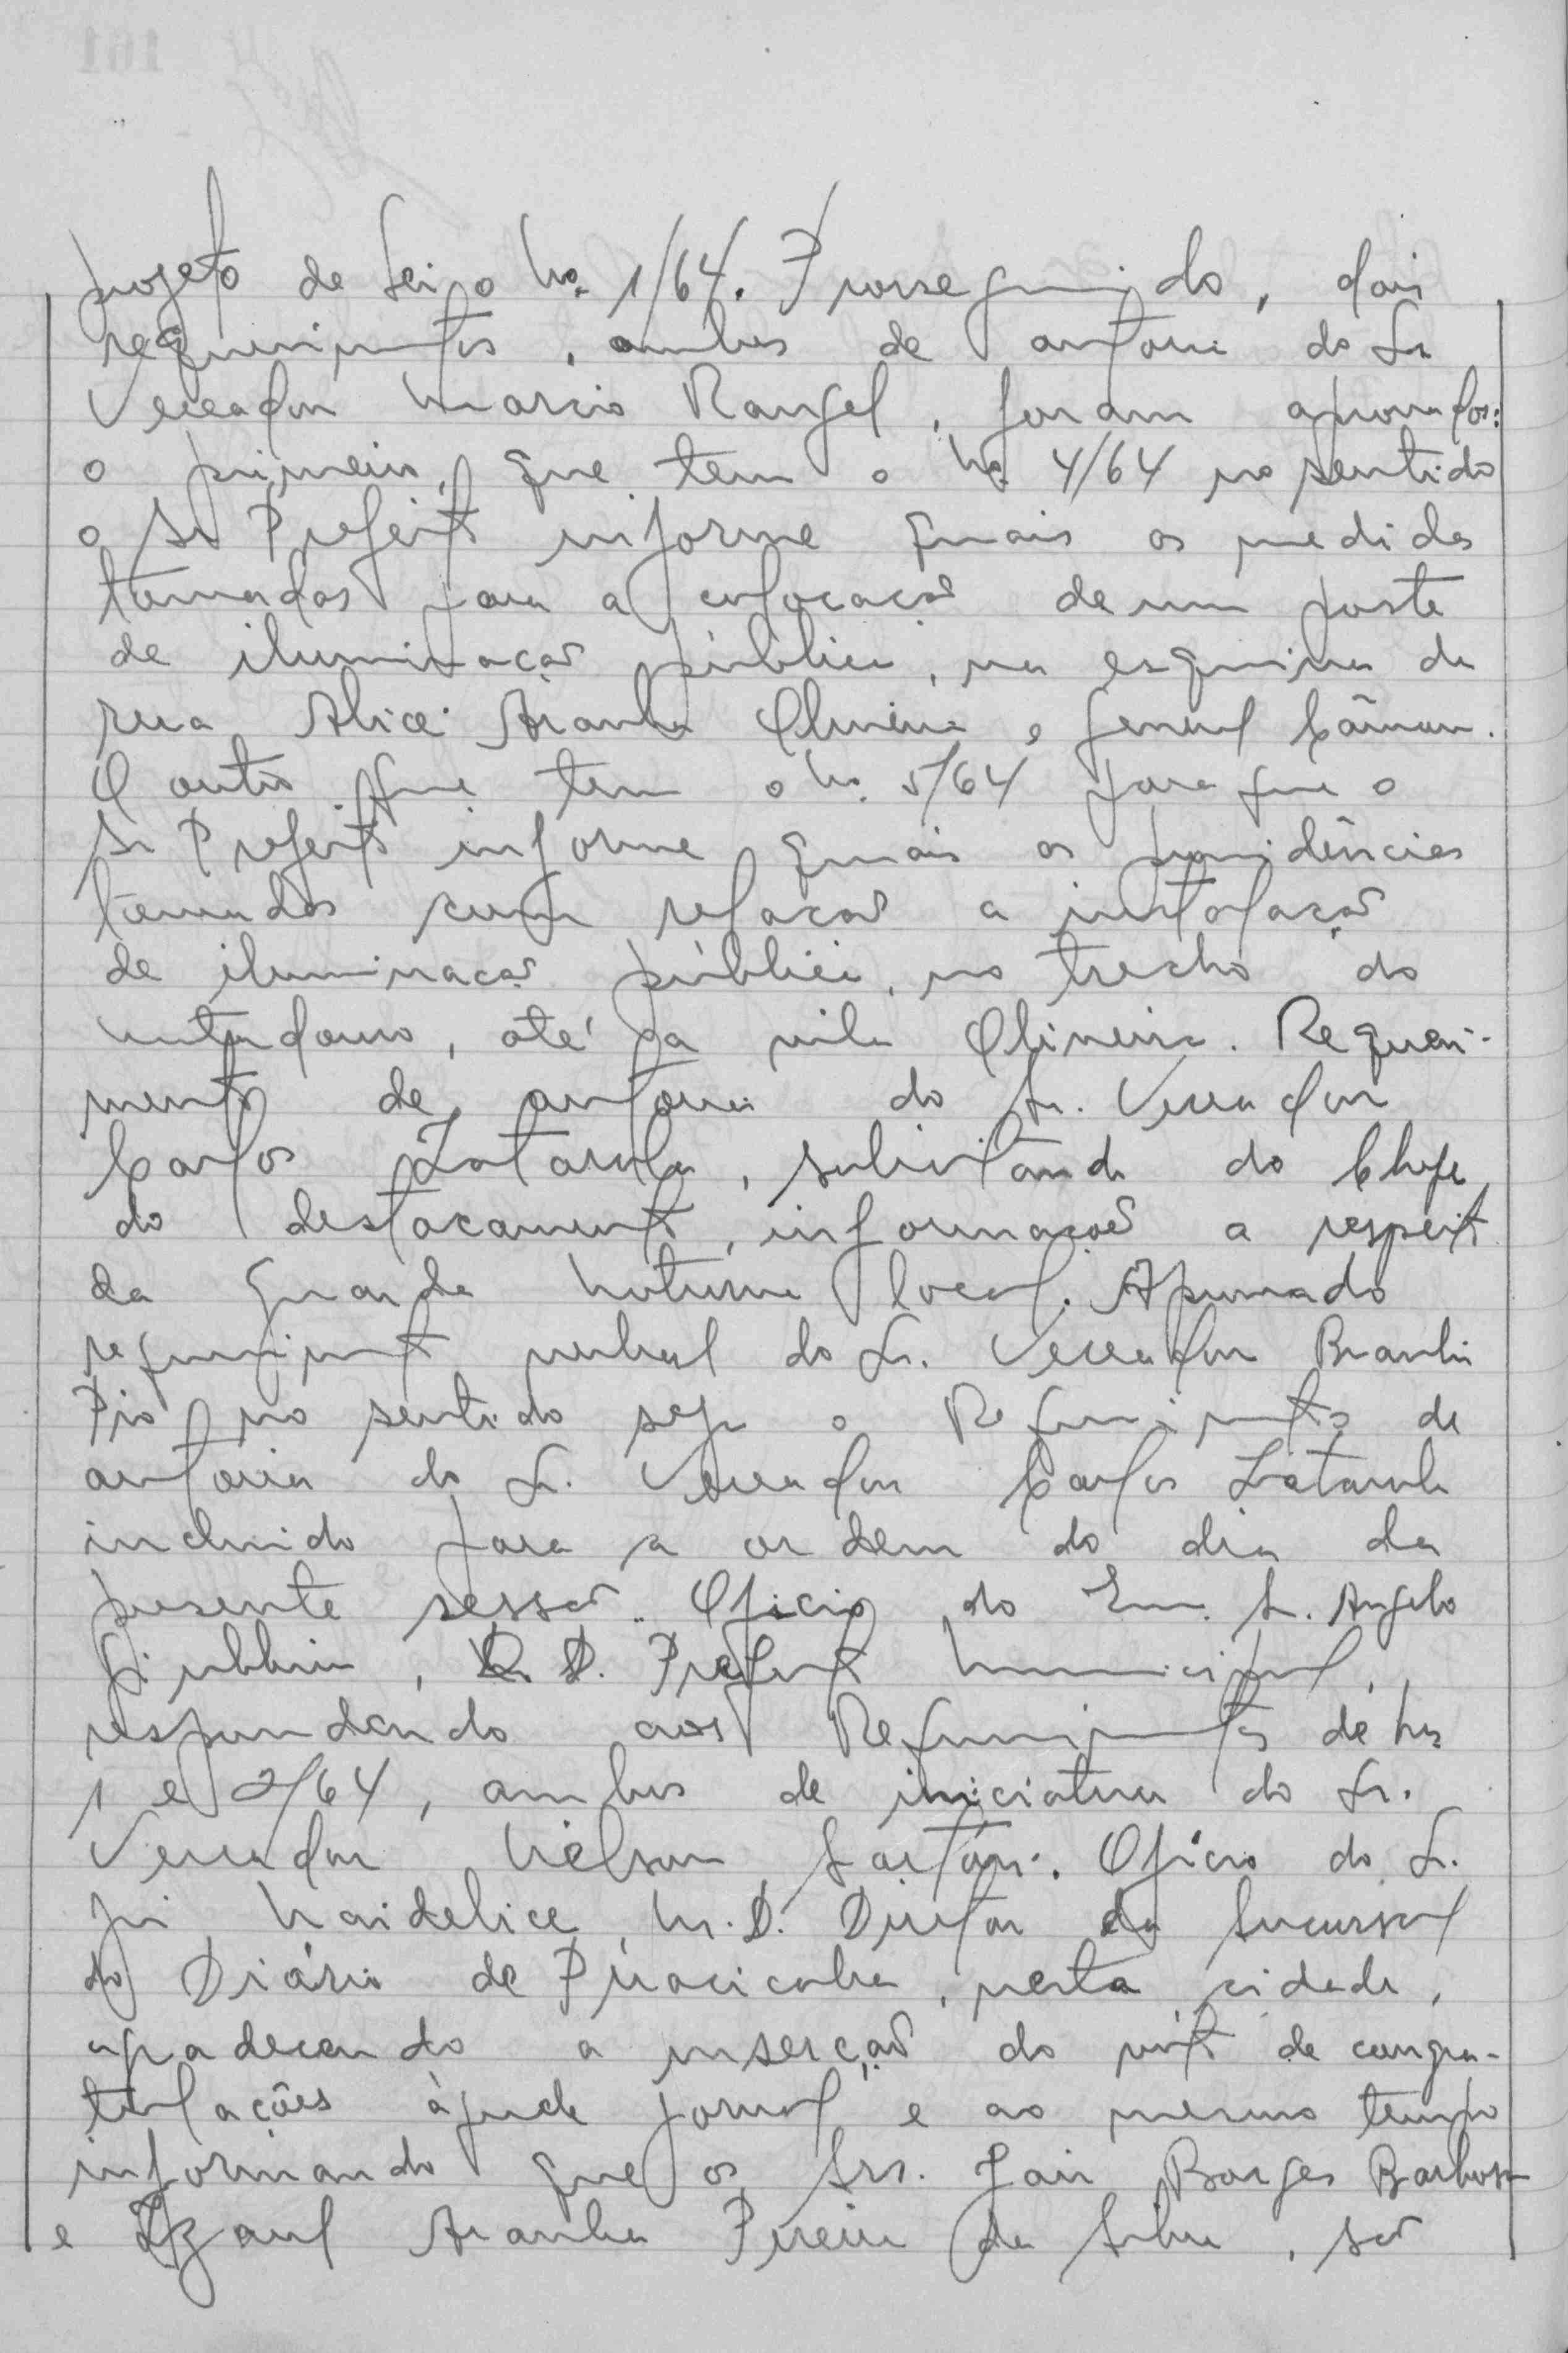 projeto de Lei, o no. 1/64. Prosseguindo, dois
requerimentos, ambos de autoria do Sr
Vereador Marcio Rangel, foram aprovados:
o primeiro, que tem o no. 4/64 no sentido
o Sr Prefeito informe quais as medidas
tomadas para a colocação de um poste
de iluminação pública, na esquina da
rua Alice Aranha Oliveira e General Câmara.
O outro que tem o no. 5/64 para que o
Sr Prefeito informe quais as providências
tomadas com relação a instalação
de iluminação pública, no trecho do
matadouro, até a vila Oliveira. Requeri-
mento de autoria do Sr. Vereador
Carlos, solicitando do Chefe
do destacamento, informações a respeito
da guarda noturna local. Aprovado
requerimento verbal do Sr. Vereador
Pio no sentido seja o Requerimento de
autoria do Sr. Vereador Carlos
incluido para a ordem do dia da
presente sessão. Oficio do Exm. Sr. Angelo
D. Prefeito Municipal,
respondendo aos Requerimentos de nos
1 e 2/64, ambos de iniciativa do Sr.
Vereador Nelson. Ofício do Sr.
M. D. Diretor da Sucursal
do Diário de Piracicaba, nesta cidade,
agradecendo a inserção do voto de congra-
tulações àquele jornal e ao mesmo tempo
informando que os Srs. Jair Borges Barbosa
e Aranha Pereira da Silva, são